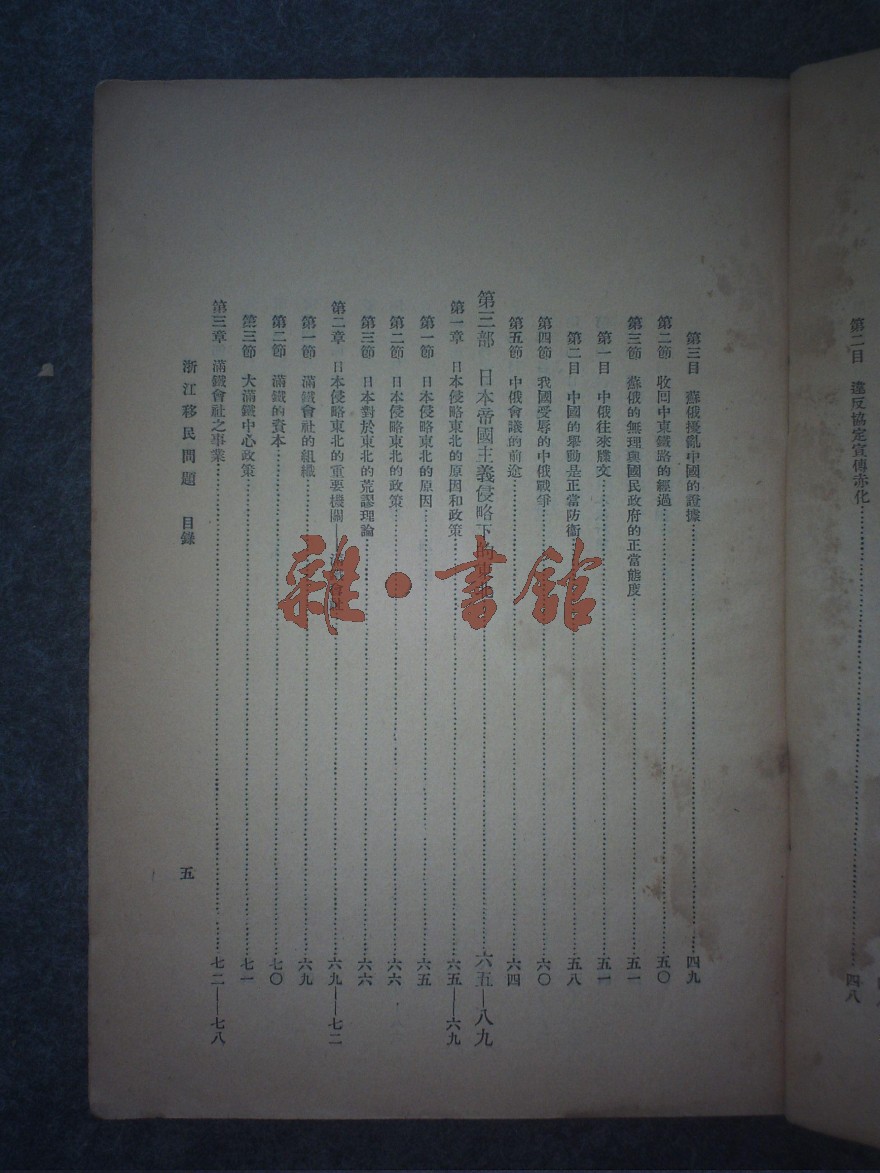 第二目 違反協定宣傳赤化……四八
第三目 蘇俄擾亂中國的證據……四九
第二節 收回中東鐵路的經過……五〇
第三節 蘇俄的無理與國民政府的正當態度……五一
第一目 中俄往來牒文……五一
第二目 中國的舉動是正當防衞……五八
第四節 我國受辱的中俄戰爭……六〇
第五節 中俄會議的前途……六四
第三部 日本帝國主義侵略下的東北……六五——八九
第一章 日本侵略東北的原因和政策……六五——六九
第一節 日本侵略東北的原因……六五
第二節 日本侵略東北的政策……六六
第三節 日本對於東北的荒謬理論……六六
第二章 日本侵略東北的重要機關——滿鐵會社……六九——七二
第一節 滿鐵會社的組織……六九
第二節 滿鐵的資本……七〇
第三節 大滿鐵中心政策……七一
第三章 滿鐵會社之事業……七二——七八
浙江移民問題 目錄 五
雜·書館